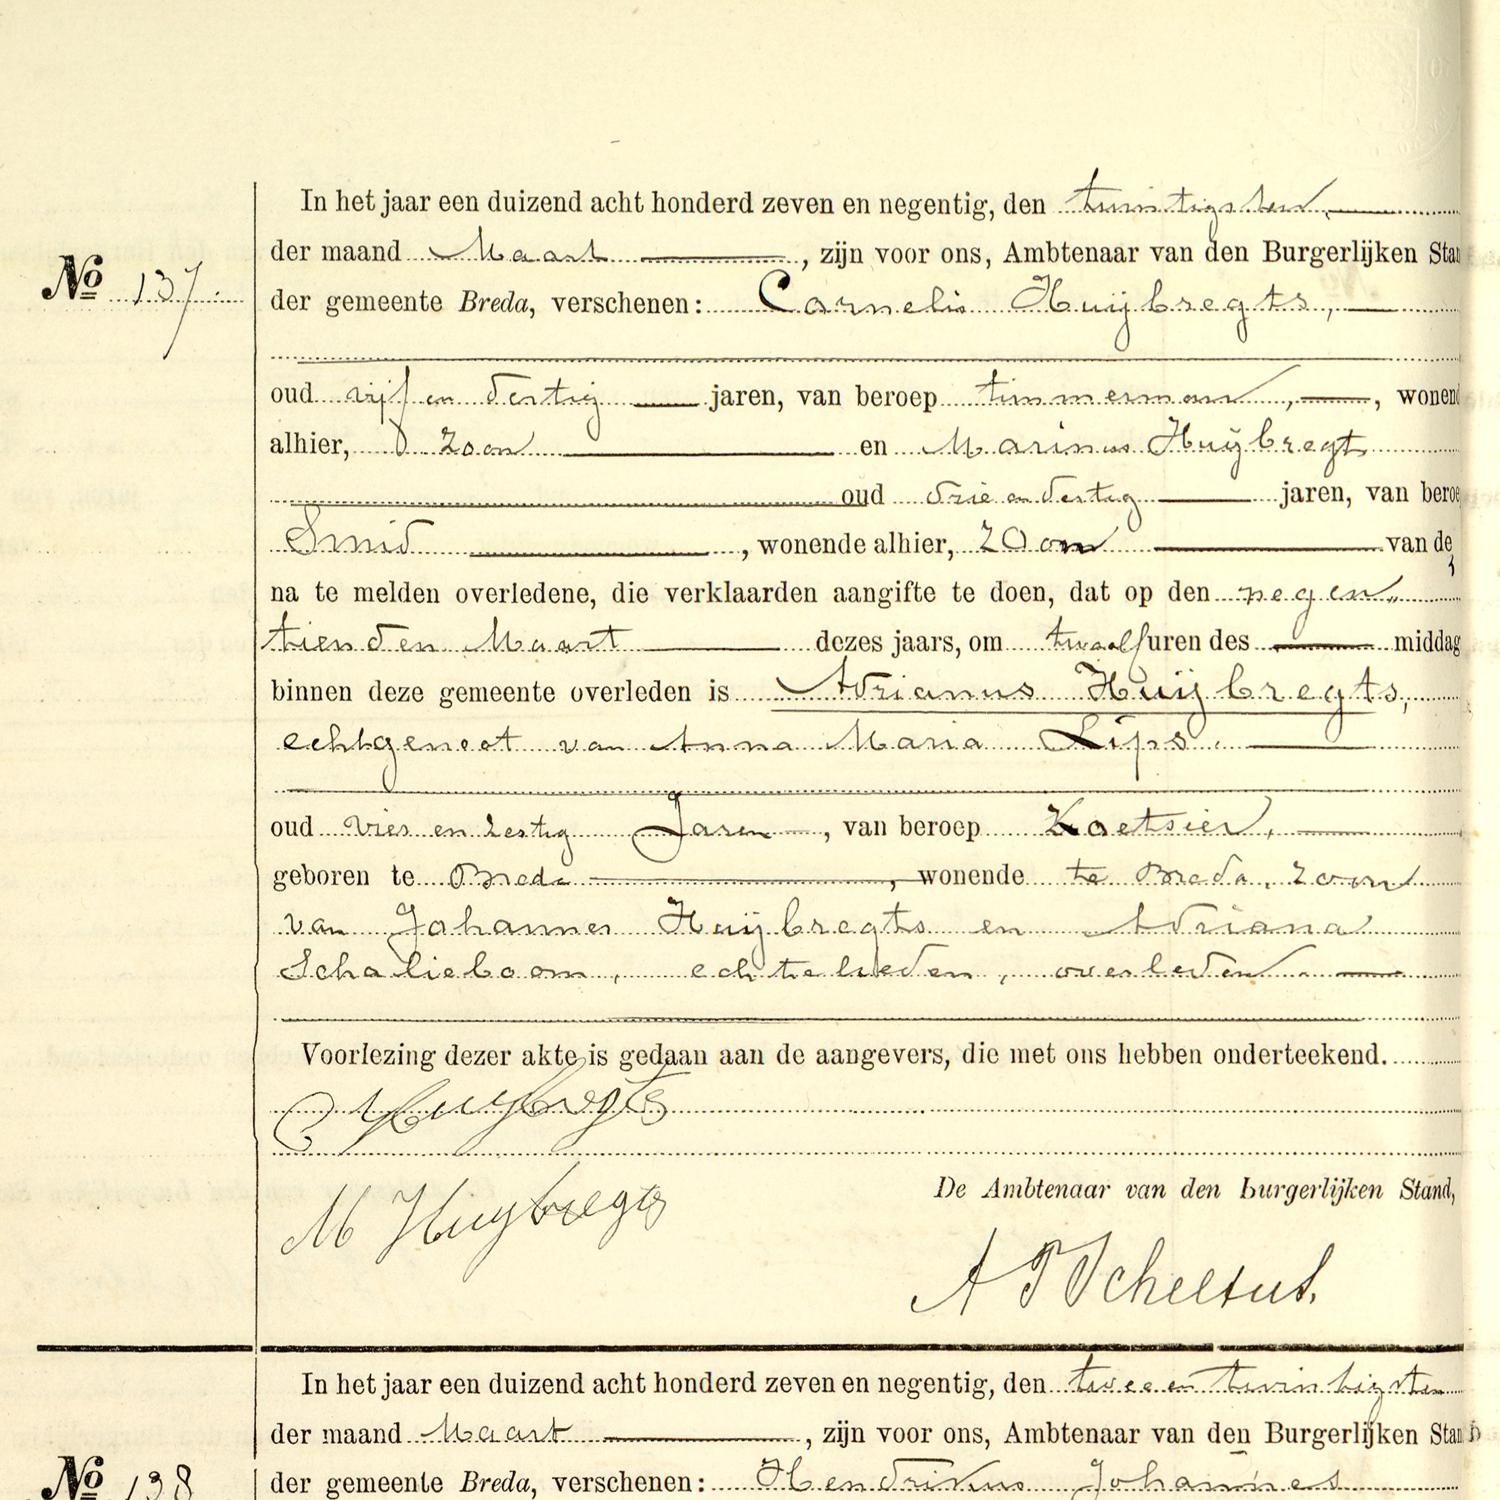 In het jaar een duizend acht honderd zeven en negentig, den twintigsten,
der maand Maart, zijn voor ons, Ambtenaar van den Burgerlijken Stan
No 137.
der gemeente Breda, verschenen: Cornelis Huijbregts,
oud vijf en dertig jaren, van beroep timmerman, wonend
alhier, zoon en Marinus Huijbregts
oud drie en dertig jaren, van beroe
Smid, wonende alhier, zoon van de
na te melden overledene, die verklaarden aangifte te doen, dat op den negen
tienden Maart dezes jaars, om twaalf uren des middag
binnen deze gemeente overleden is Adrianus Huijbregts,
echtgenoot van Anna Maria Lips.
oud vier en zestig Jaren, van beroep Koetsier,
geboren te Breda, wonende te Breda, zoon
van Johannes Huijbregts en Adriana
Schalieboom, echtelieden, overleden.
Voorlezing dezer akte is gedaan aan de aangevers, die met ons hebben onderteekend.
C Huybregts
De Ambtenaar van den burgerlijken Stand,
M Huybregts
In het jaar een duizend acht honderd zeven en negentig, den twee en twintigsten
der maand Maart, zijn voor ons, Ambtenaar van den Burgerlijken Stan
No 138
der gemeente Breda, verschenen: Hendrikus Johannes